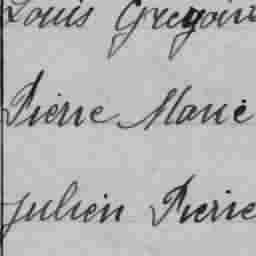 Louis Grégoire
Pierre Marie
Julien Pierre